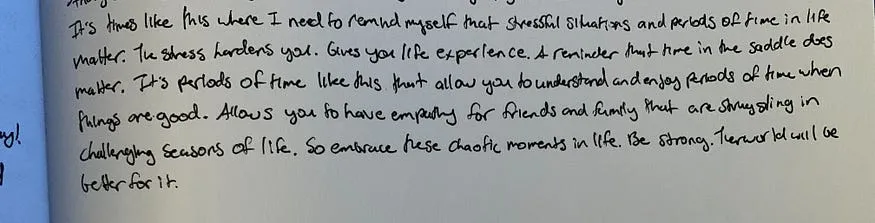 It's times like this where I need to remind myself that stressful situations and periods of time in life
matter. The stress hardens you. Gives you life experience. A reminder that time in the saddle does
matter. It's periods of time like this that allow you to understand and enjoy periods of time when
things are good. Allows you to have empathy for friends and family that are struggling in
challenging seasons of life. So embrace these chaotic moments in life. Be strong. will be
better for it.